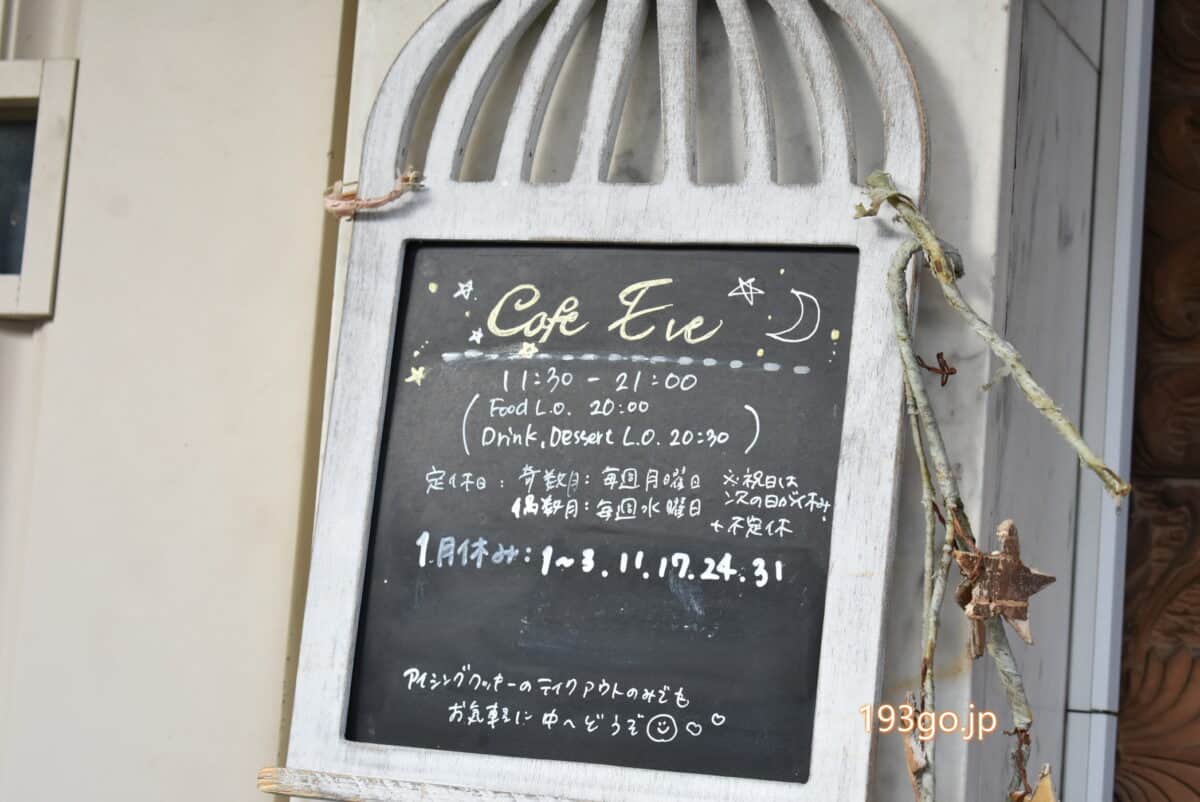 Cafe Eve
11:30 - 21:00
( Food L.O. 20:00
Drink, Dessert L.O. 20:30 )
定休日: 奇数月: 毎週月曜日
偶数月: 毎週水曜日
※祝日は
次の日がお休み
+ 不定休
1月休み: 1~3.11.17.24.31
アイシングクッキーのテイクアウトのみでも
お気軽に中へどうぞ
193go.jp